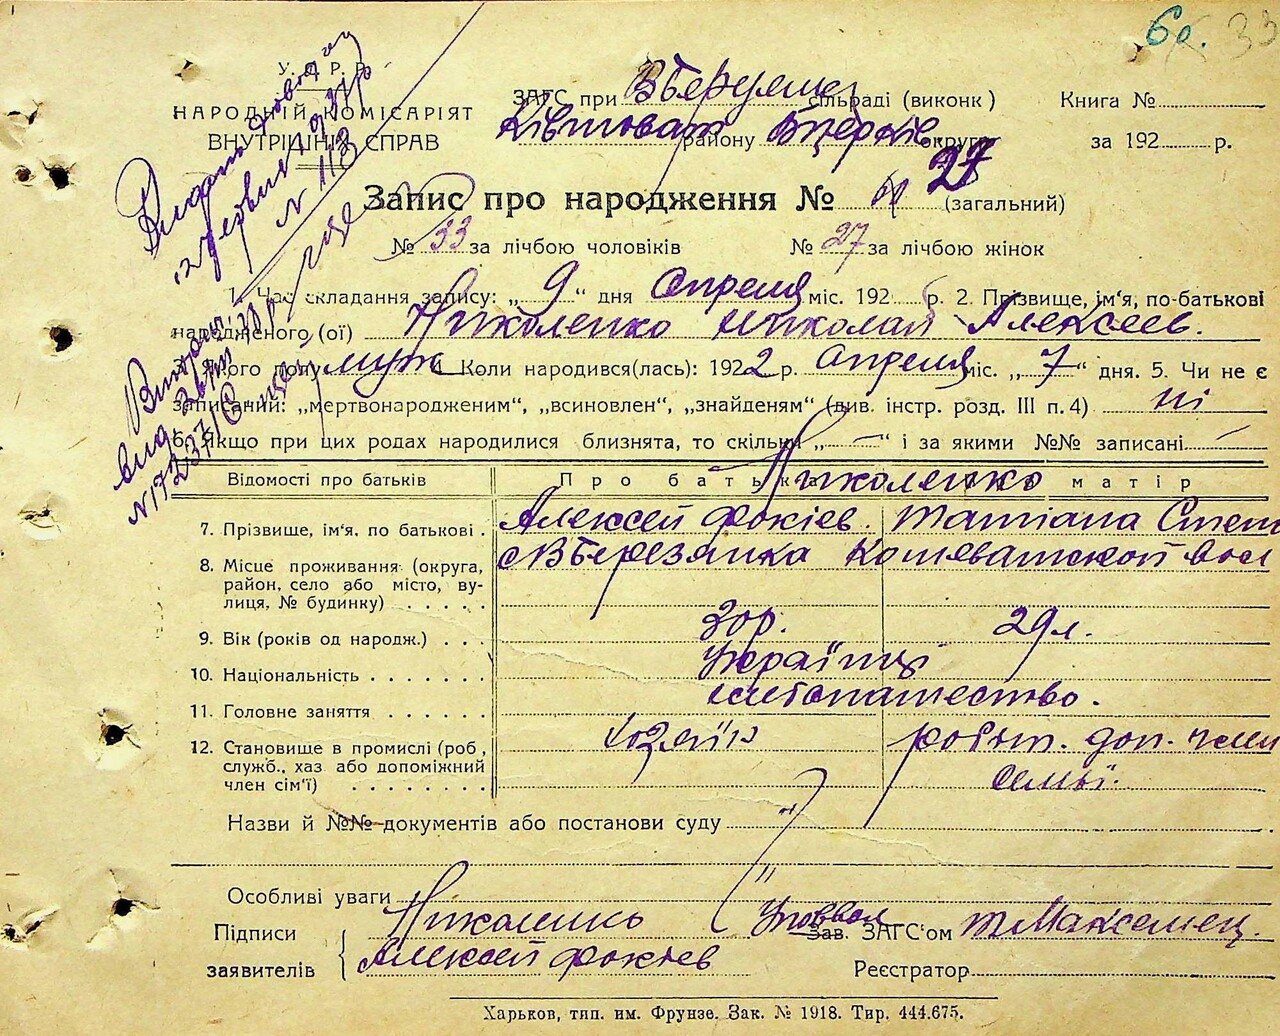 60. 33
У. С. Р. Р.
НАРОДНІЙ КОМІСАРІЯТ
ВНУТРІШНІХ СПРАВ
ЗАГС при ВБерезянс. сільраді (виконк)
Ківшоват району БЦерків округи
Книга №
за 192 р.
Запис про народження № 27 (загальний)
№ 33 за лічбою чоловіків № 27 за лічбою жінок
1. Час складання запису: „ 9 “ дня Опреля міс. 192 р. 2. Прізвище, ім'я, по-батькові
народженого (ої) Николенко Николай Алексеев.
3. Якого полу муж 4. Коли народився(лась): 1922 р. Опреля міс. „ 7 “ дня. 5. Чи не є
записаний: „мертвонародженим“, „всиновлен“, „знайденям“ (див. інстр. розд. III п. 4) ні
6. Якщо при цих родах народилися близнята, то скільки „ — “ і за якими №№ записані —
Відомості про батьків Про батька Николенко матір
7. Прізвище, ім'я, по батькові . Алексей Фокіев. Татіана Степ
8. Місце проживання (округа, район, село або місто, вулиця, № будинку) . . . . .
с ВБерезянка Кошеватской вол
9. Вік (років од народж.) . . . 30р. 29л.
10. Національність . . . . . . . Українці
11. Головне заняття . . . . . . хлебопашество.
12. Становище в промислі (роб., служб., хаз або допоміжний член сім'ї) . . . . . . . .
хозяїн робот. доп. член семьї.
Назви й №№ документів або постанови суду „
Особливі уваги „
Підписи заявителів { Николенко
Алексей Фокіев
Зав. ЗАГС'ом
Реєстратор
Харьков, тип. им. Фрунзе. Зак. № 1918. Тир. 444.675.
N 113
N 17237